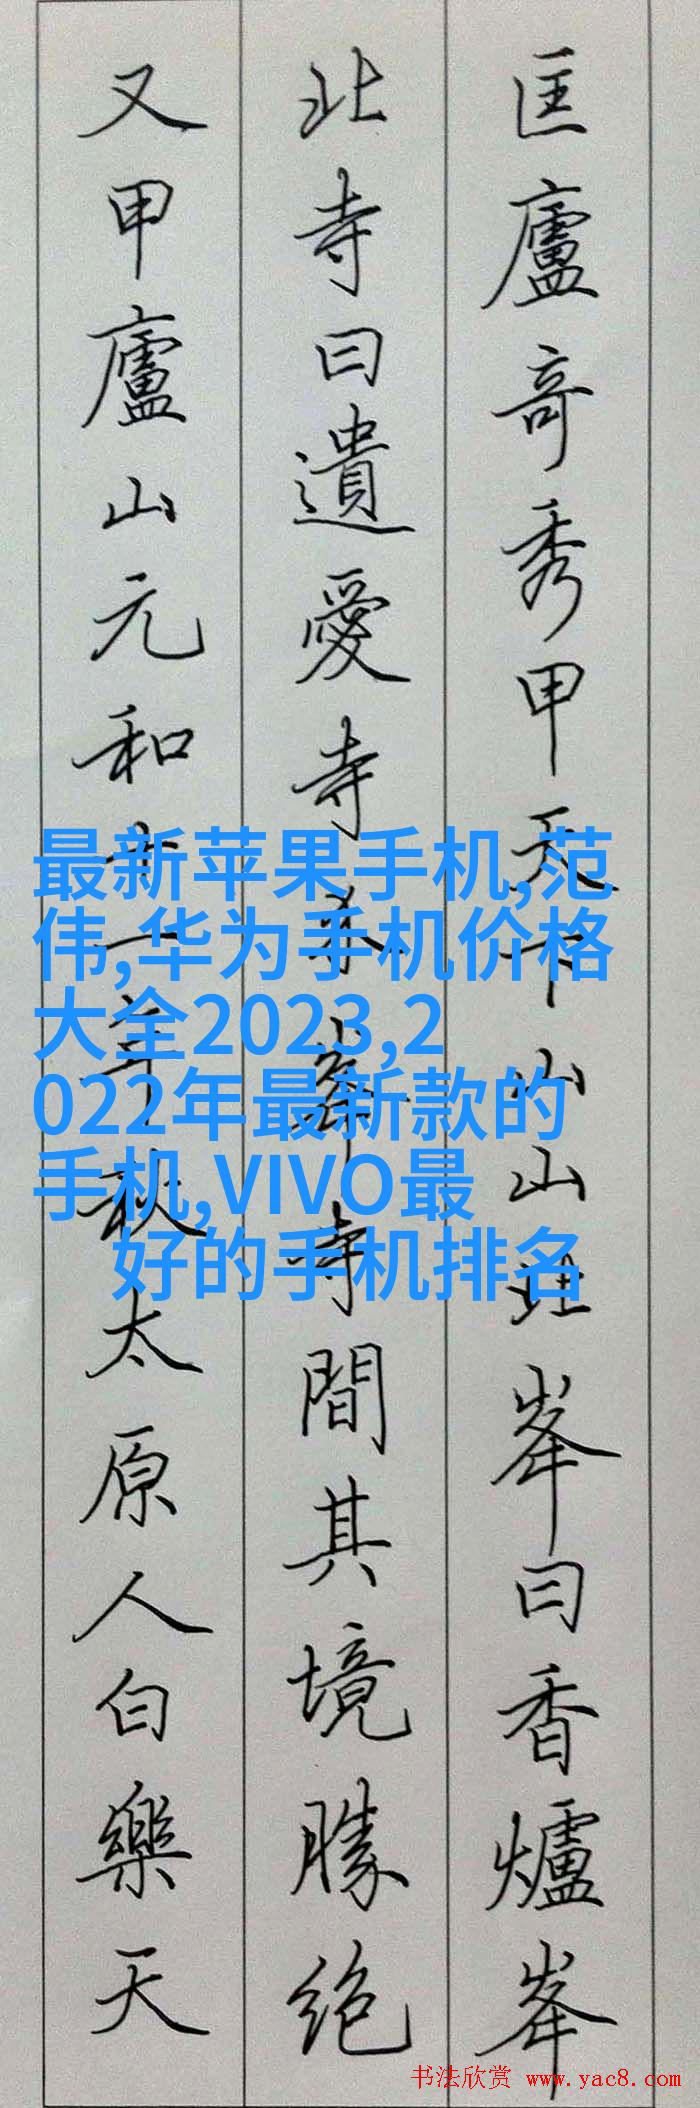 匡廬奇秀甲天下山山北峯曰香爐峯
北寺曰遺愛寺介峯寺間其境勝絶
又甲廬山元和十一年秋太原人白樂天
最新苹果手机,范
伟,华为手机价格
大全2023,2
022年最新款的
手机,VIVO最
好的手机排名
书法欣赏 www.yac8.com